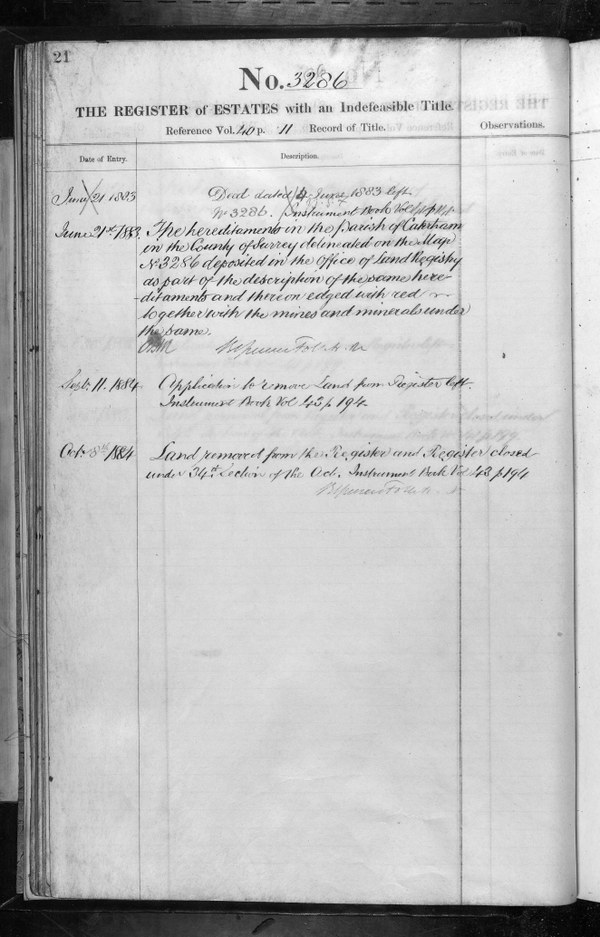 21
No. 3286
THE REGISTER of ESTATES with an Indefeasible Title.
Reference Vol. 40 p. 11 Record of Title.
Observations.
Date of Entry.
Description.
June 21 1883
Deed dated 4 June 1883 left
No 3286. Instrument Book Vol
June 21st 1883.
The hereditaments in the parish of Caterham
in the County of Surrey delineated on the Map
No 3286 deposited in the Office of Land Registry
as part of the description of the same here
-ditaments and thereon edged with red
together with the mines and minerals under
the same.
Sept. 11. 1884
Application to remove Land from Register left.
Instrument Book Vol 43 p 194
Oct 8th 1884
Land removed from the Register and Register closed
under 34th Section of the Act. Instrument Book Vol 43 p 194